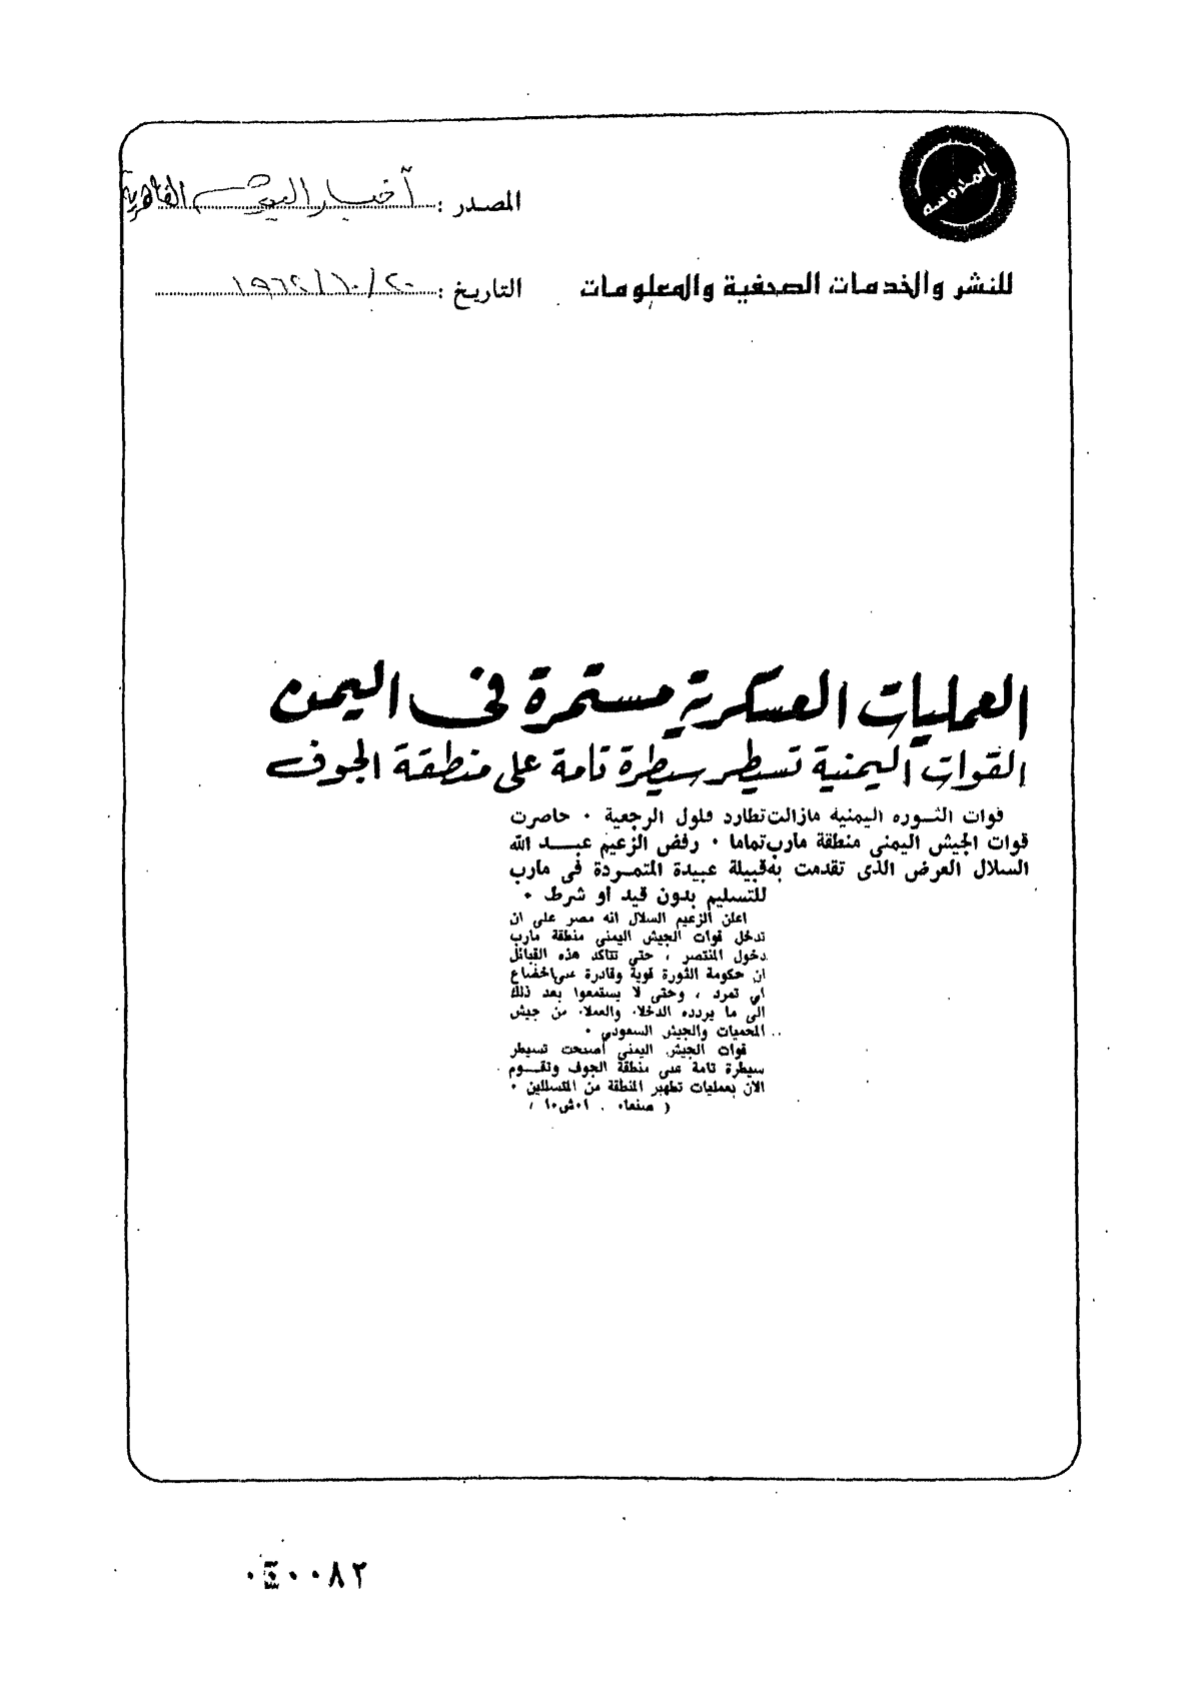 المحروسة
المصدر : أخبار اليوم القاهرية
للنشر والخدمات الصحفية والمعلومات
التاريخ : ٢٠/١٠/١٩٦٢
العمليات العسكرية مستمرة فى اليمن
القوات اليمنية تسيطر سيطرة تامة على منطقة الجوف
قوات الثوره اليمنية مازالت تطارد فلول الرجعية ٠ حاصرت
قوات الجيش اليمنى منطقة مارب تماما ٠ رفض الزعيم عبد الله
السلال العرض الذى تقدمت به قبيلة عبيدة المتمردة فى مارب
للتسليم بدون قيد او شرط ٠
اعلن الزعيم السلال انه مصر على ان
تدخل قوات الجيش اليمنى منطقة مارب
دخول المنتصر ، حتى تتأكد هذه القبائل
ان حكومة الثورة قوية وقادرة على اخضاع
اى تمرد ، وحتى لا يستمعوا بعد ذلك
الى ما يردده الدخلاء والعملاء من جيش
المحميات والجيش السعودى ٠
قوات الجيش اليمنى أصبحت تسيطر
سيطرة تامة على منطقة الجوف وتقوم
الان بعمليات تطهير المنطقة من المتسللين ٠
( صنعاء ٠ ا٠ش٠ا )
٠٠٨٢